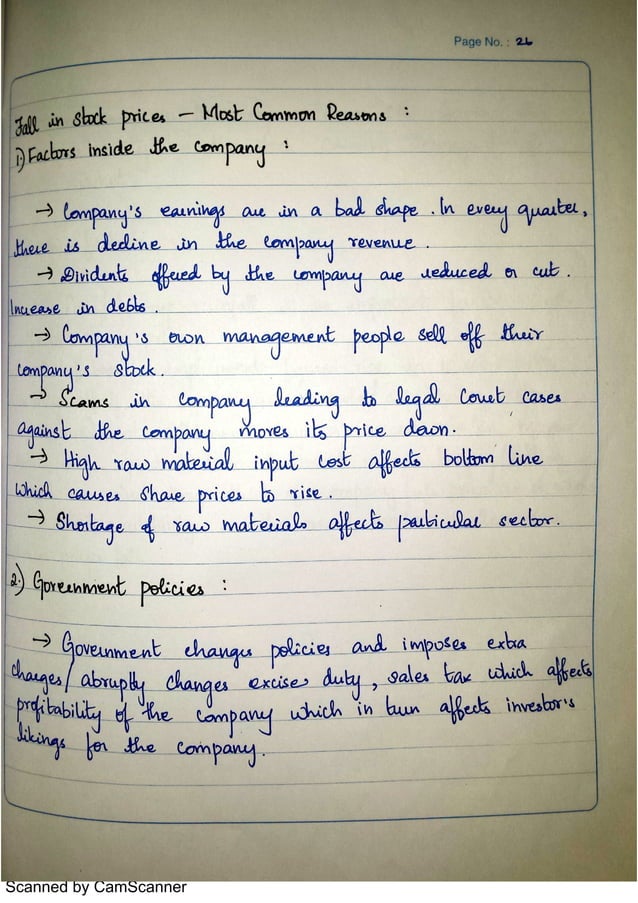 Page No. : 26
Fall in stock prices – Most Common Reasons :
1) Factors inside the company :
→ Company's earnings are in a bad shape. In every quarter,
there is decline in the company revenue.
→ Dividents offered by the company are reduced or cut.
Increase in debts.
→ Company's own management people sell off their
company's stock.
→ Scams in company leading to legal Court cases
against the company moves its price down.
→ High raw material input cost affects bottom line
which causes share prices to rise.
→ Shortage of raw materials affects particular sector.
2.) Government policies :
→ Government changes policies and imposes extra
charges/ abruptly changes excise duty, sales tax which affects
profitability of the company which in turn affects investor's
likings for the company.
Scanned by CamScanner